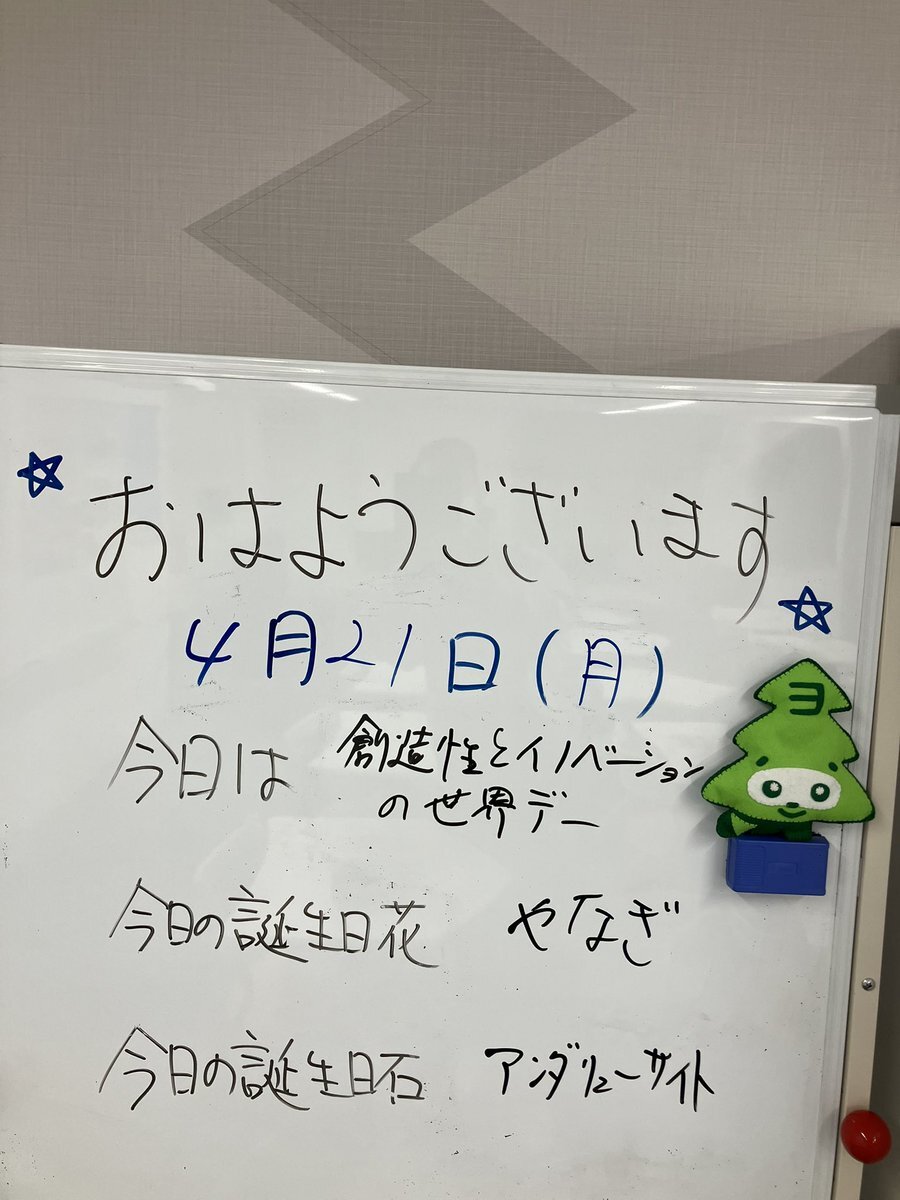 ☆ おはようございます ☆
4月21日(月)
今日は 創造性とイノベーション
の世界デー
今日の誕生日花 やなぎ
今日の誕生日石 アンダリューサイト
ヨ